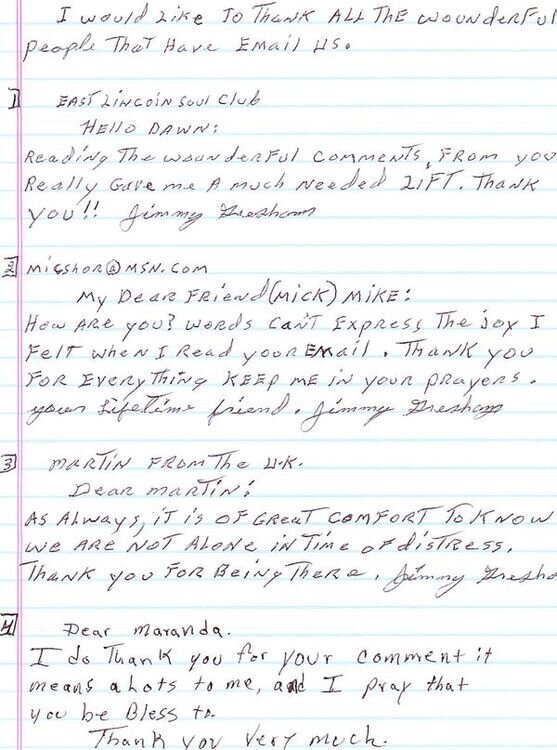 I would Like To Thank ALL THE wounderFul
people That Have Email us.
1 EAST LINCOIN Soul Club
HELLO DAWN:
Reading The wounderful comments, From you
Really Gave me A much needed LIFT. Thank
you!! Jimmy Gresham
2 micshor@msn.com
My Dear Friend (Mick) Mike:
How Are you? words Can't Express The joy I
Felt when I Read your Email. Thank you
For Everything KEEP ME in your prayers.
your Lifetime friend. Jimmy Gresham
3 MARTIN FROM The U.K.
Dear martin:
AS Always, it is OF Great COMFORT To KNOW
WE ARE NOT ALONE in Time of distress.
Thank you For Being There. Jimmy Gresha
4 Dear Maranda.
I do Thank you for your comment it
means a Lots to me, and I pray that
you be Bless to.
Thank you Very much.